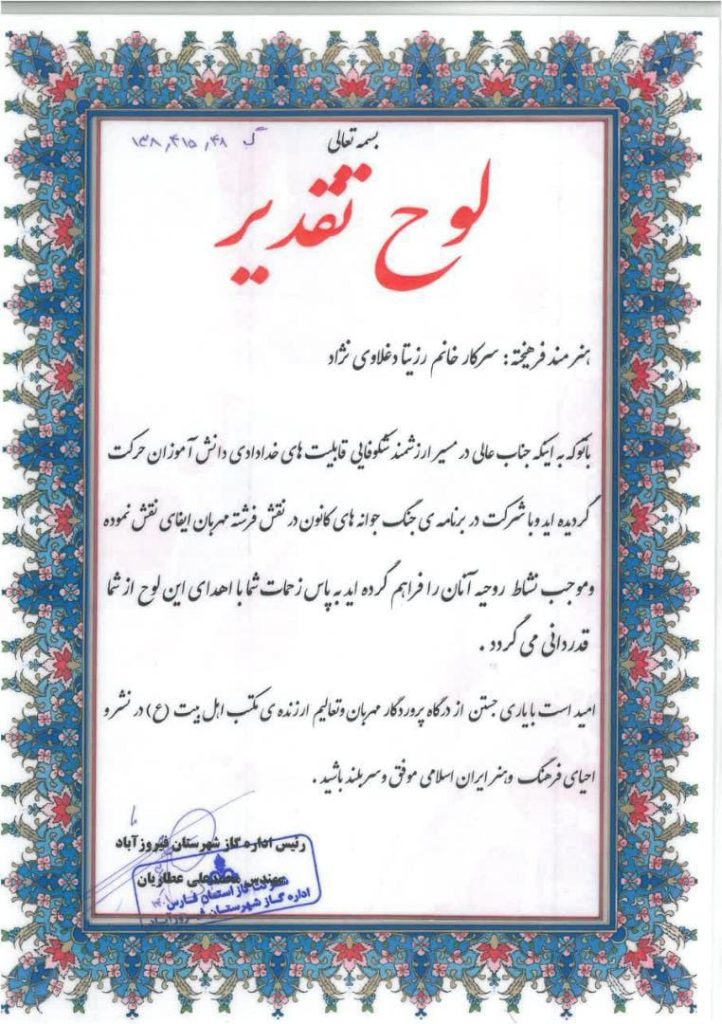 بسمه تعالی
گ ۱۳۸٫۴۱۵٫۴۸
لوح تقدیر
هنرمند فرهیخته: سرکار خانم رزیتا دغلاوی نژاد
باتوجه به اینکه جناب عالی در مسیر ارزشمند شکوفایی قابلیت های خدادادی دانش آموزان حرکت
گردیده اید وبا شرکت در برنامه ی جنگ جوانه های کانون در نقش فرشته مهربان ایفای نقش نموده
وموجب نشاط روحیه آنان را فراهم کرده اید به پاس زحمات شما با اهدای این لوح از شما
قدردانی می گردد.
امید است با یاری جستن از درگاه پروردگار مهربان وتعالیم ارزنده ی مکتب اهل بیت (ع) در نشر و
احیای فرهنگ وهنر ایران اسلامی موفق و سربلند باشید.
رئیس اداره گاز شهرستان فیروزآباد
مهندس محمدعلی عطاریان
شرکت گاز استان فارس
اداره گاز شهرستان فیروزآباد